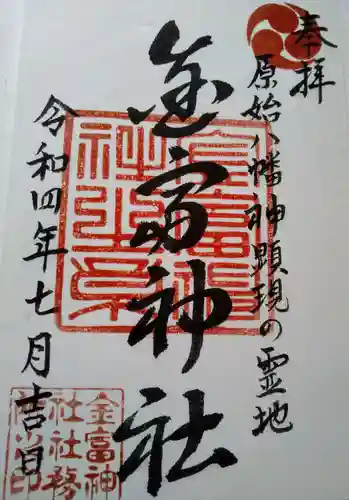 奉拝
原始八幡神顕現の霊地
金富神社
令和四年七月吉日
金富神
社社務